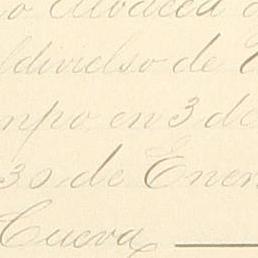 o Alvacea
ldivielso de
mpo, en 3 de
30 de Ener
Cueva